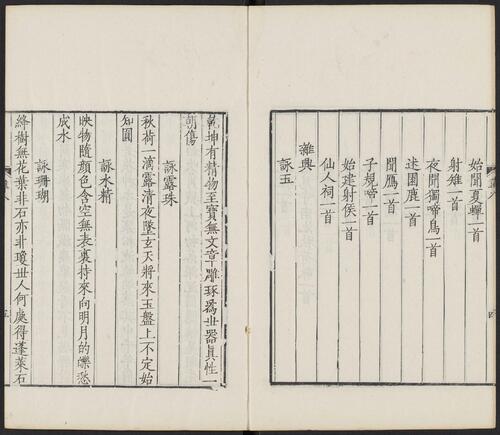 始聞夏蟬一首
射雉一首
夜聞獨啼鳥一首
述園鹿一首
聞鴈一首
子規啼一首
始建射侯一首
仙人祠一首
雜興
詠玉
乾坤有精物至寶無文章雕琢爲世器眞性一
朝傷
詠露珠
秋荷一滴露清夜墜玄天將來玉盤上不定始
知圓
詠水精
映物隨顏色含空無表裏持來向明月的皪愁
成水
詠珊瑚
絳樹無花葉非石亦非瓊世人何處得蓬萊石